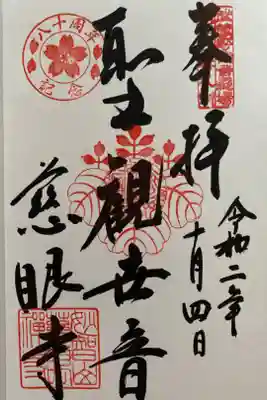 奉拝
令和二年
十月四日
聖観世音
慈眼寺
八十周年
記念